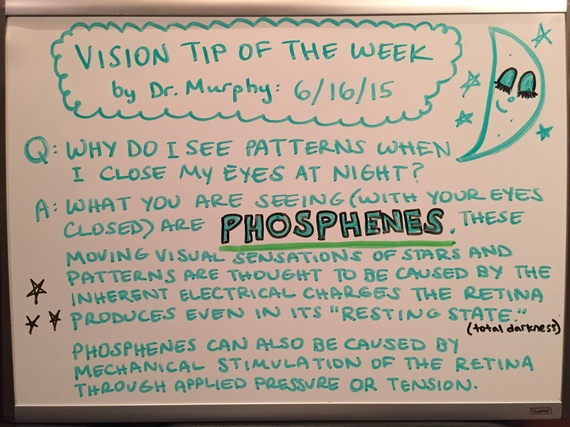 VISION TIP OF THE WEEK
by Dr. Murphy: 6/16/15
Q: WHY DO I SEE PATTERNS WHEN
I CLOSE MY EYES AT NIGHT?
A: WHAT YOU ARE SEEING (WITH YOUR EYES
CLOSED) ARE PHOSPHENES. THESE
MOVING VISUAL SENSATIONS OF STARS AND
PATTERNS ARE THOUGHT TO BE CAUSED BY THE
INHERENT ELECTRICAL CHARGES THE RETINA
PRODUCES EVEN IN ITS "RESTING STATE."
(total darkness)
PHOSPHENES CAN ALSO BE CAUSED BY
MECHANICAL STIMULATION OF THE RETINA
THROUGH APPLIED PRESSURE OR TENSION.
Quartet